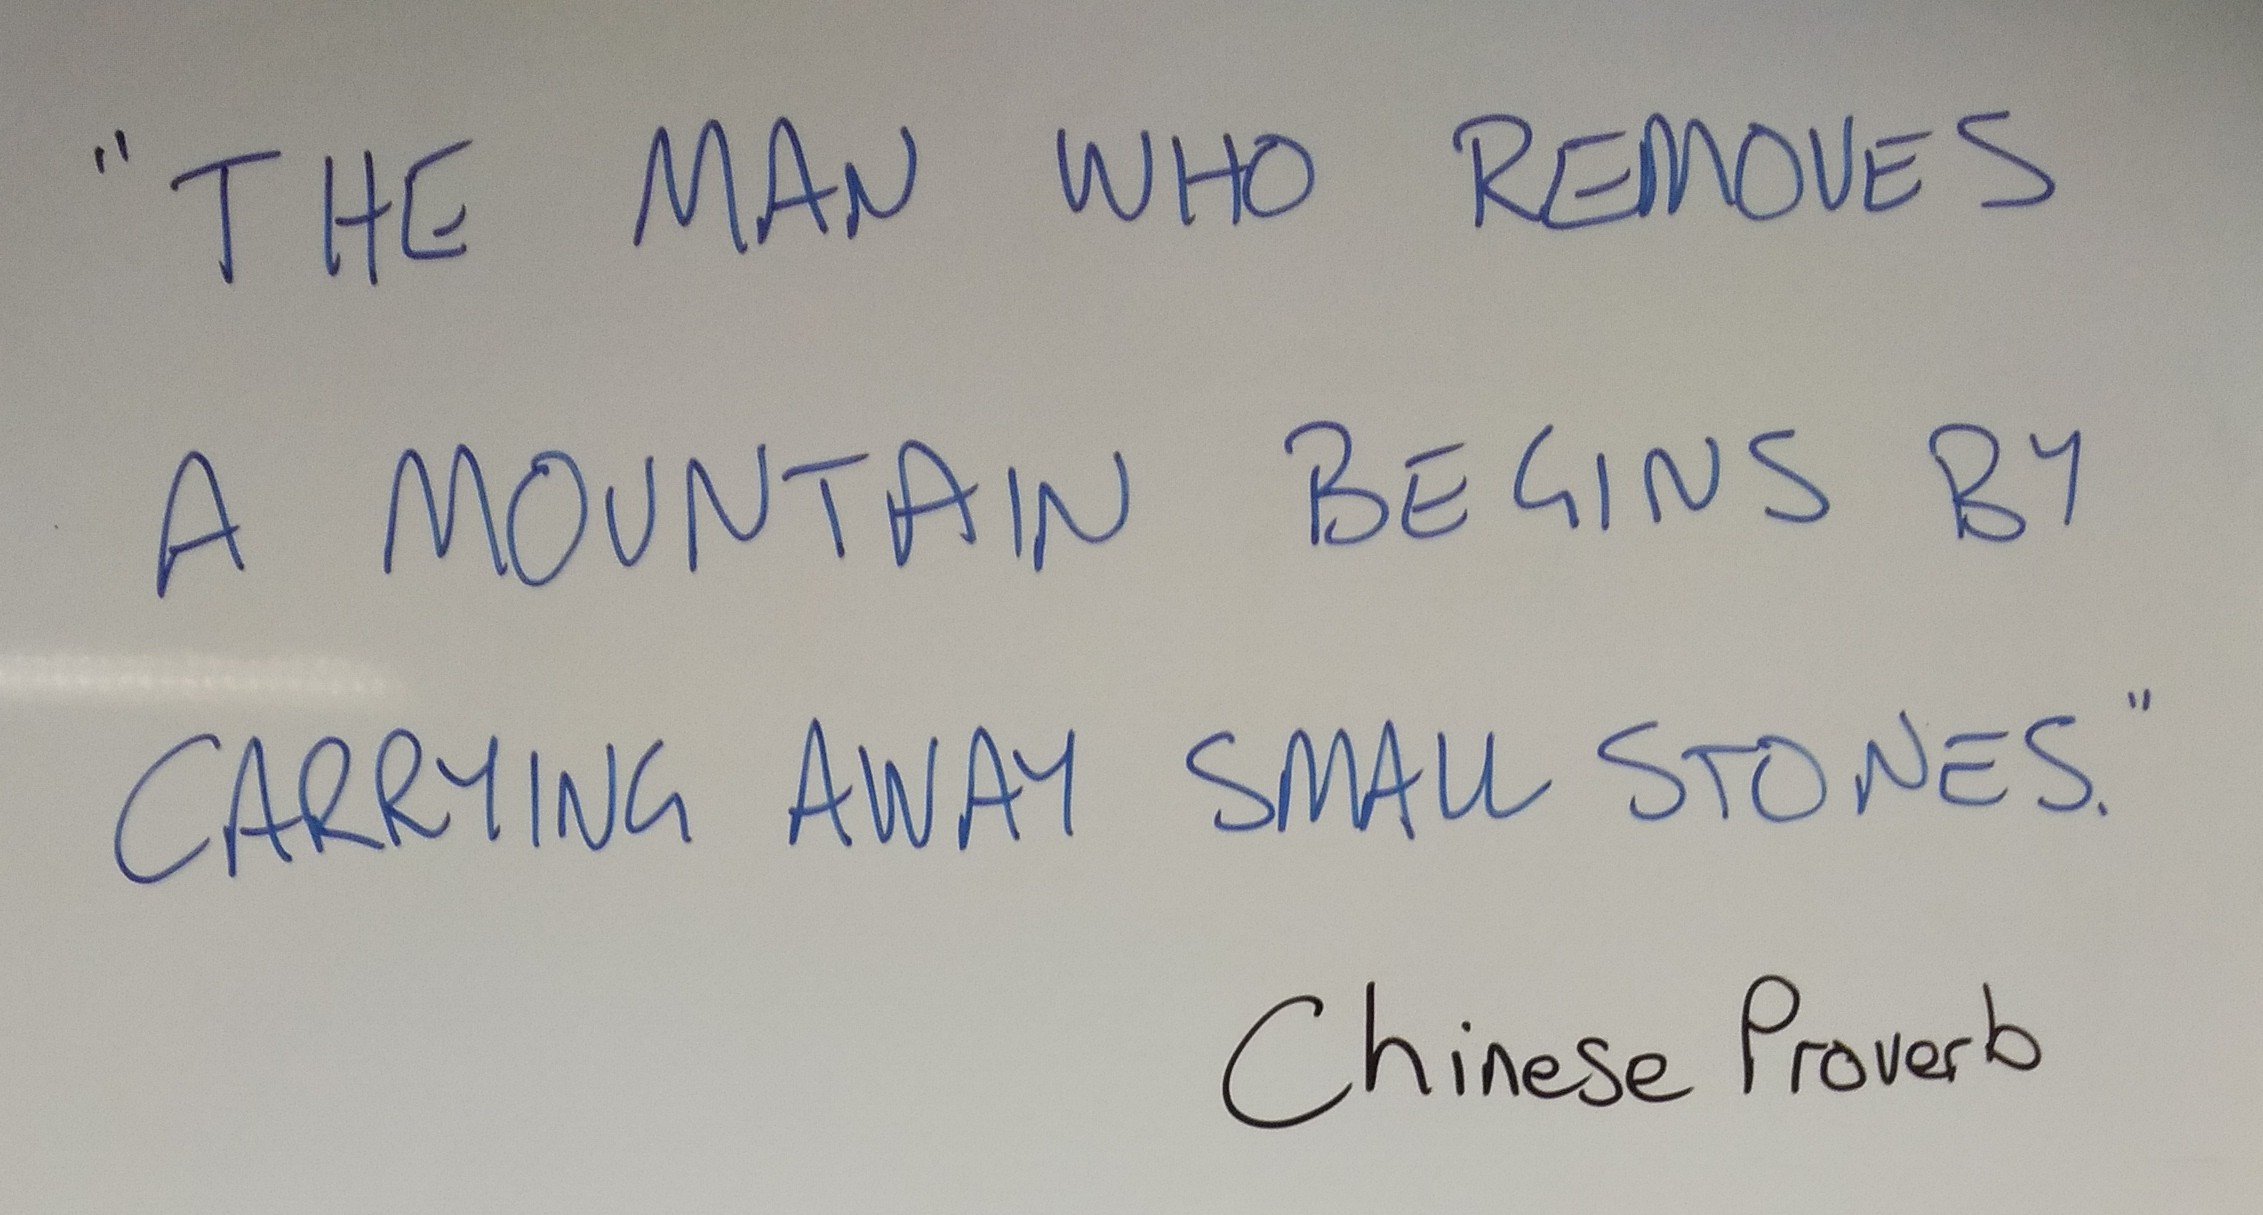 "THE MAN WHO REMOVES
A MOUNTAIN BEGINS BY
CARRYING AWAY SMALL STONES."
Chinese Proverb